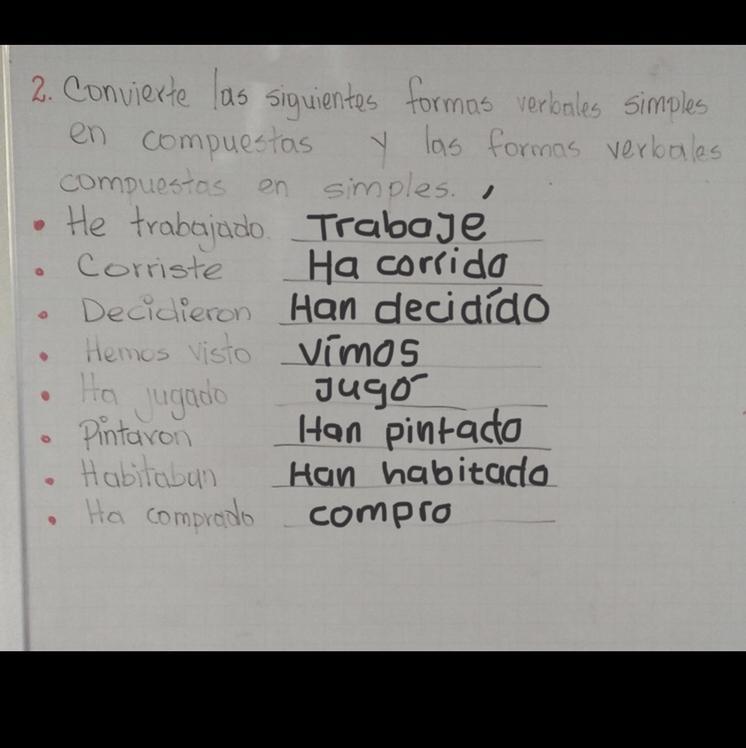 2. Convierte las siguientes formas verbales simples
en compuestas y las formas verbales
compuestas en simples.
• He trabajado. Trabajé
• Corriste Ha corrido
• Decidieron Han decidído
• Hemos visto vímos
• Ha jugado Jugó
• Pintaron Han pintado
• Habitaban Han habitado
• Ha comprado compro